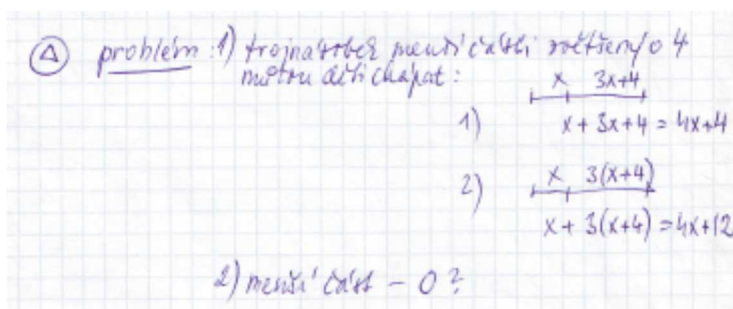 △ problém: 1) trojnásobek menší části zvětšený o 4
mohou děti chápat:
x 3x+4
1) x + 3x + 4 = 4x+4
2) x 3(x+4)
x + 3(x+4) = 4x+12
2) menší část - 0?